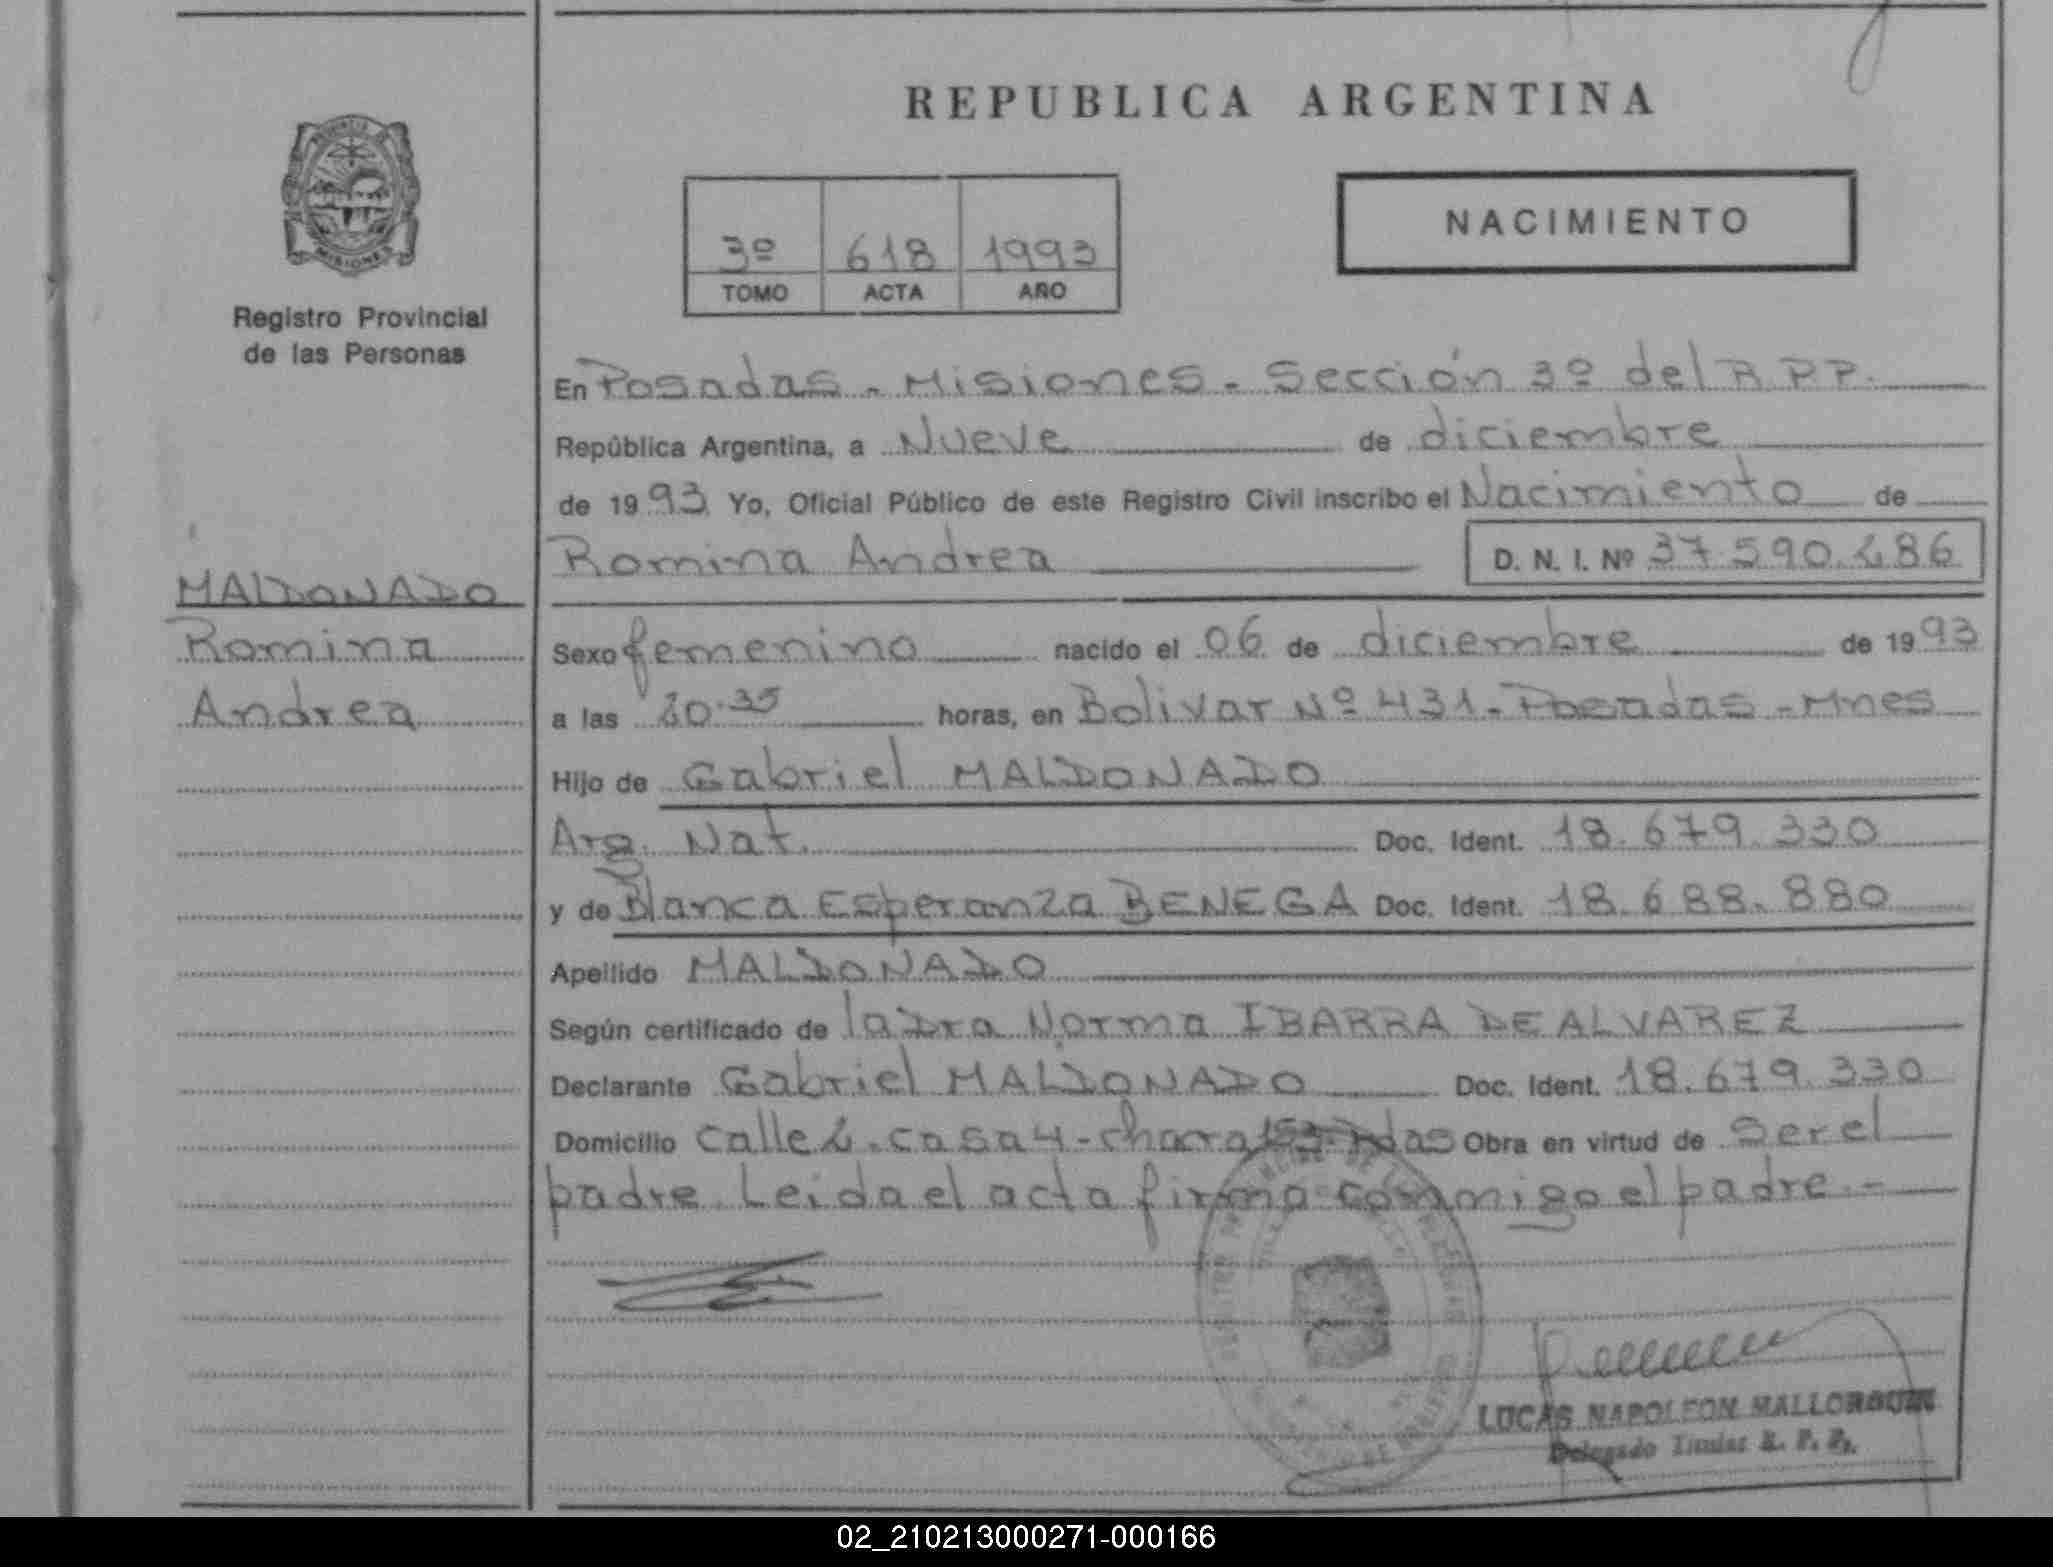 REPUBLICA ARGENTINA
MISIONES
Registro Provincial
de las Personas
3º 618 1993
TOMO ACTA AÑO
NACIMIENTO
En Posadas - Misiones - Sección 3º del R P P.
República Argentina, a Nueve de diciembre
de 1993 Yo, Oficial Público de este Registro Civil inscribo el Nacimiento de
Romina Andrea D. N. I. Nº 37.590.286
MALDONADO
Romina
Andrea
Sexo femenino nacido el 06 de diciembre de 1993
a las 20.35 horas, en Bolivar Nº 431 - Posadas - Mnes
Hijo de Gabriel MALDONADO
Arg. Nat. Doc. Ident. 18.679.330
y de Blanca Esperanza BENEGA Doc. Ident. 18.688.880
Apellido MALDONADO
Según certificado de la Dra Norma IBARRA DE ALVAREZ
Declarante Gabriel MALDONADO Doc. Ident. 18.679.330
Domicilio calle 2 - casa 4 - chacra 153 - Pdas Obra en virtud de Ser el
padre. Leida el acta firma conmigo el padre.-
LUCAS NAPOLEON MALLORQUIN
Delegado Titular R. P. P.
02_210213000271-000166